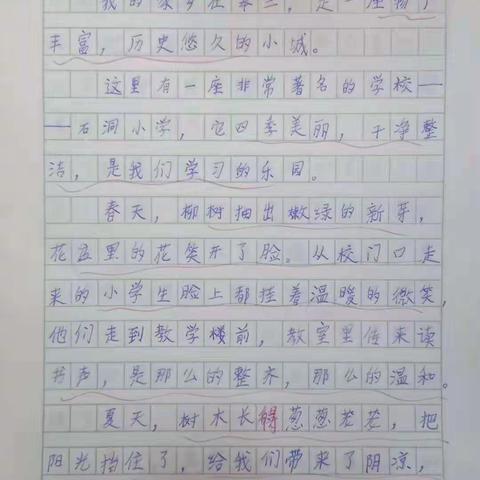 我的家乡在奉
丰富，历史悠久的小城。
这里有一座非常著名的学校—
—石洞小学，它四季美丽，干净整
洁，是我们学习的乐园。
春天，柳树抽出嫩绿的新芽，
花盆里的花笑开了脸。从校门口走
来的小学生脸上都挂着温暖的微笑，
他们走到教学楼前，教室里传来读
书声，是那么的整齐，那么的温和。
夏天，树木长得葱葱茏茏，把
阳光挡住了，给我们带来了阴凉，